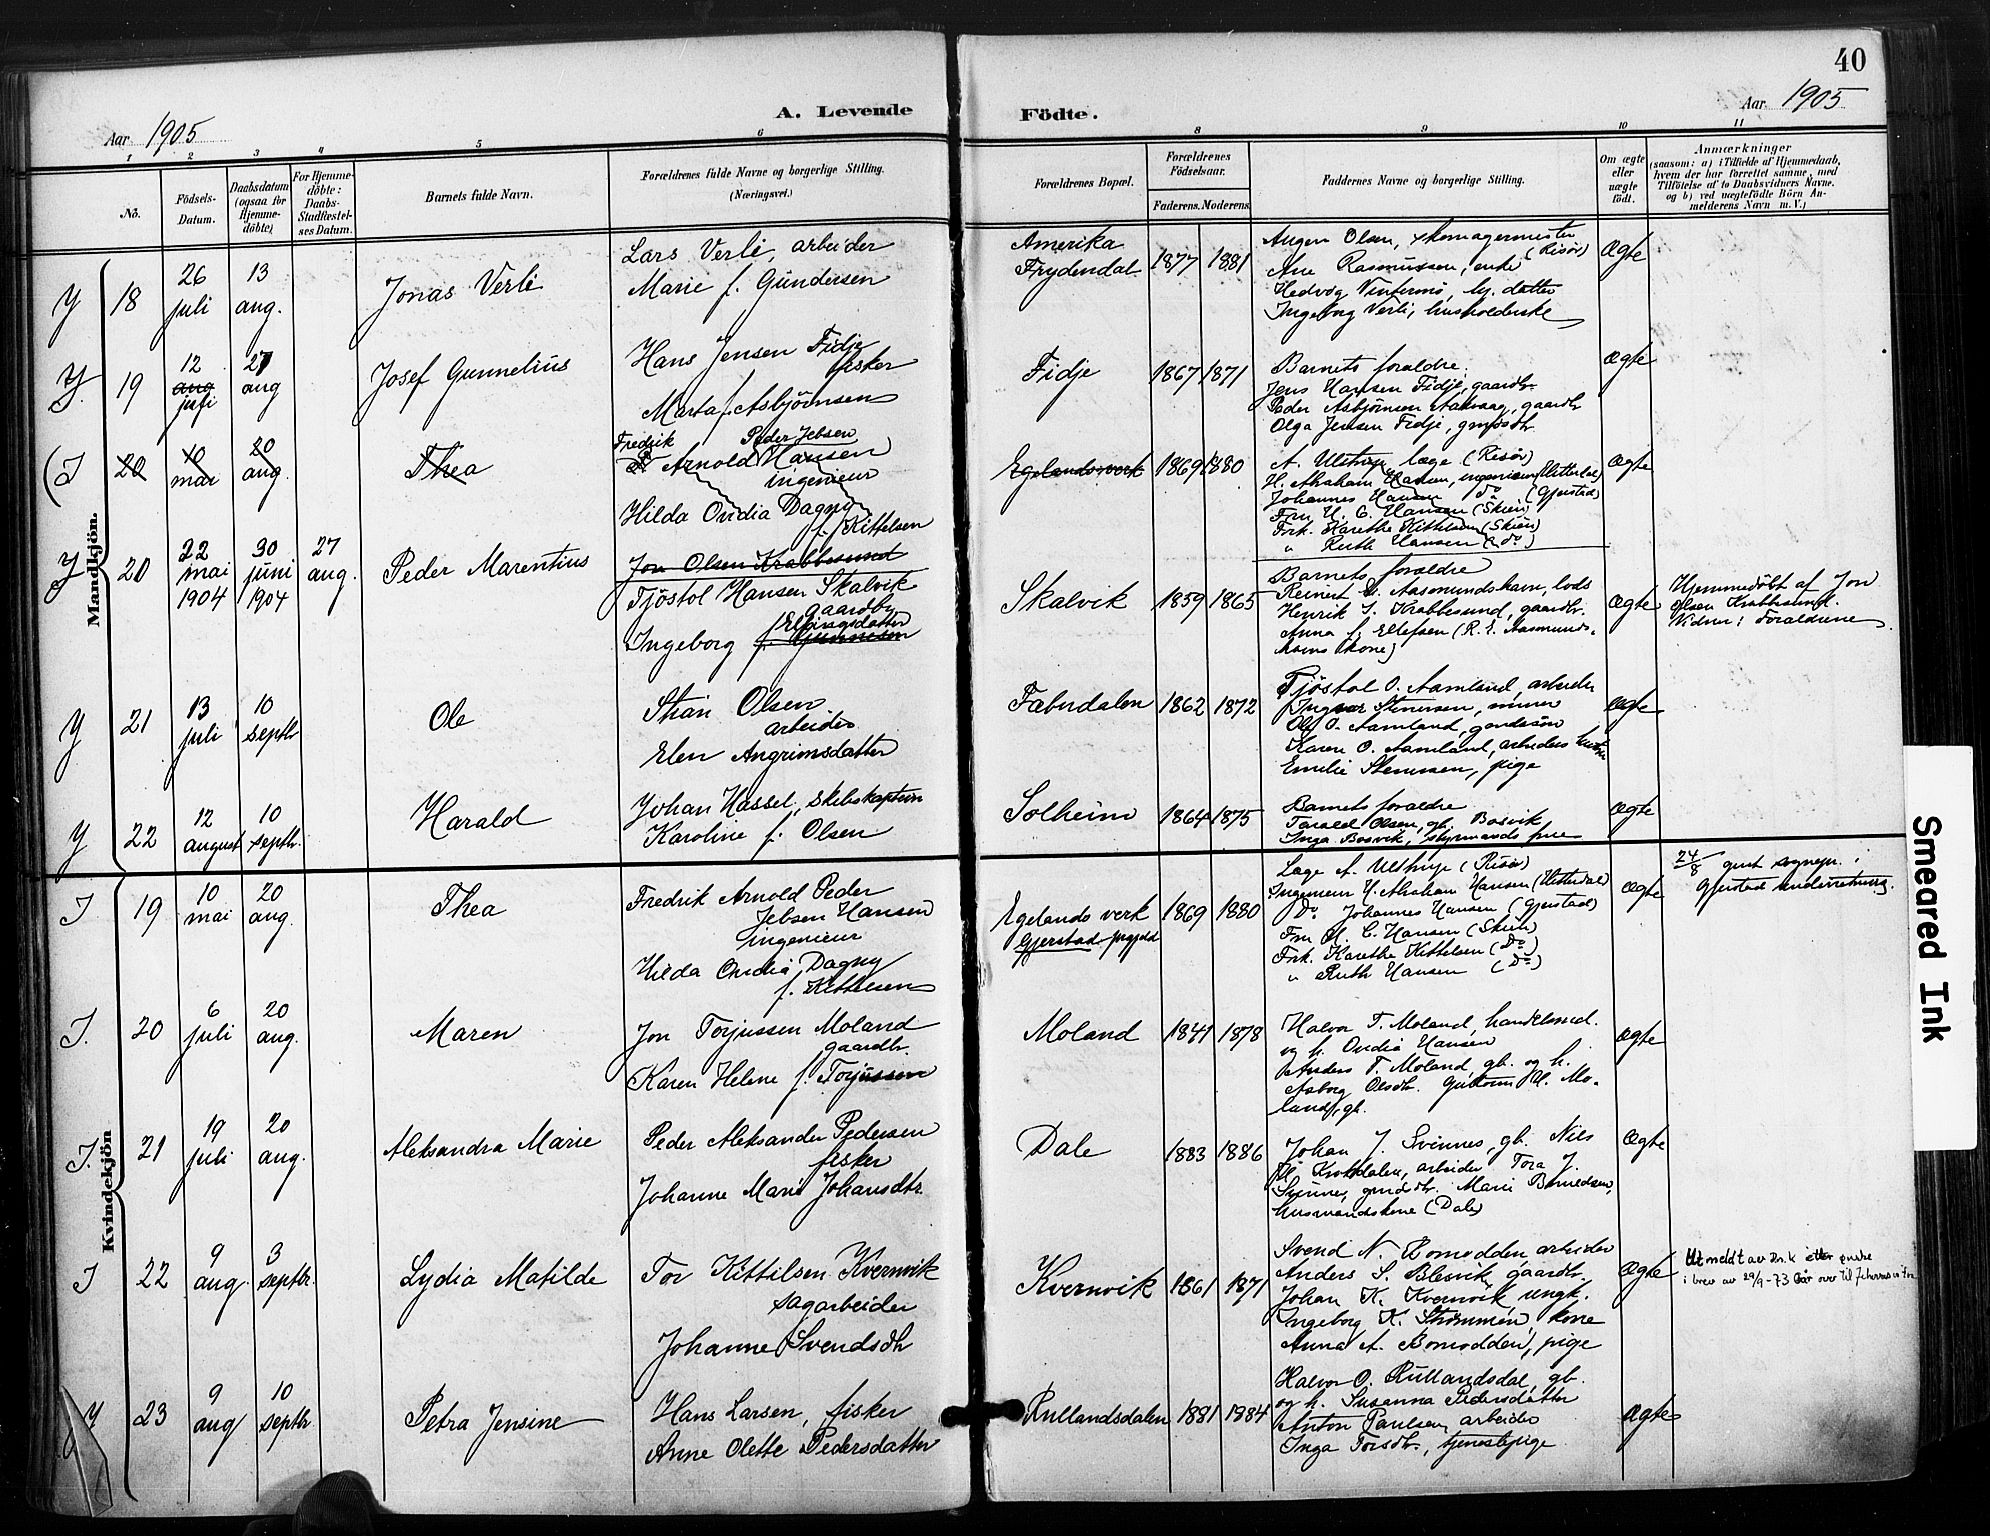 40
Aar 1905
A. Levende
Födte.
Aar 1905
1 2 3 4 5 6 8 9 10 11
No.
Födsels-
Datum.
Daabsdatum
(ogsaa for
Hjemme-
döbte)
For Hjemme-
döbte:
Daabs-
Stadfæstel-
ses Datum.
Barnets fulde Navn.
Forældrenes fulde Navne og borgerlige Stilling.
(Næringsvei.)
Forældrenes Bopæl.
Forældrenes
Födselsaar.
Faderens. Moderens.
Faddernes Navne og borgerlige Stilling.
Om ægte
eller
uægte
födt.
Anmærkninger
(saasom: a) i Tilfælde af Hjemmedaab,
hvem der har forrettet samme, med
Tilföielse af to Daabsvidners Navne.
og b) ved uægtefödte Börn An-
melderens Navn m. V.)
Mandkjön.
Y 18
26 juli
13 aug.
Jonas Verli
Lars Verli, arbeider
Marie f. Gundersen
Amerika
Frydendal
1877 1881
Olsen, skomagermester
(Risör)
Ane Rasmussen, enke
Hedvig Vintermö, datter
Ingeborg Verli, husholderske
Ægte
Y. 19
12 aug juli
27 aug
Josef Gunnelius
Hans Jensen Fidje
fisker
Marta f. Asbjörnsen
Fidje
1867 1871
Barnets foraldre.
Jens Hansen Fidje, gaardbr.
Peder Asbjörnsen Aakvaag, gaardb
Olga Jensen Fidje, grmdsdtr
ægte
(J 20
10 mai
20 aug.
Thea
Fredrik Peder Jebsen
F Arnold Hansen
ingeniør
Hilda Ovidia Dagny
f. Kittelsen
Egelandsverk
1869 1880
A. Ulstrup læge (Risör)
H. Abraham Hansen, ingeniør (Hitterdal)
Johannes Hansen do (Gjerstad)
Fru H. C. Hansen (Skien)
Frk. Karethe Kittelsen (Skien)
" Ruth Hansen (do)
Ægte
Y 20
22 mai 1904
30 juni 1904
27 aug.
Peder Marentius
Jon Olsen Krabbesund
Tjöstol Hansen Skalvik
gaardbr
Ellingsdatter
Ingeborg f. Gunnesen
Skalvik
1859 1865
Barnets foraldre
Reinert E. Aasmundshavn, lods
Henrik S. Krabbesund, gaardbr.
Anna f. Ellefsen (R. E. Aasmunds-
havns kone)
Ægte
Hjemmedöbt af Jon
Olsen Krabbesund.
Vidner: Foraldrene
Y 21
13 juli
10 septbr
Ole
Stian Olsen
arbeider
Elen Angrimsdatter
Fæberdalen
1862 1872
Tjöstol O. Aamland, arbeider
Ingvar Stenersen, murer
Ole O. Aamland, gardesön
Karen O. Aamland, arbeiders hustru
Emilie Stenersen, pige
ægte
Y 22
12 august
10 septbr.
Harald
Johan Hassel, skibskaptein
Karoline f. Olsen
Solheim
1864 1875
Barnets foraldre
Tarald Olsen, gb. Bosvik
Inga Bosvik, styrmands frue
Ægte
Kvindekjön
J 19
10 mai
20 aug.
Thea
Fredrik Arnold Peder
Jebsen Hansen
ingenieur
Hilda Ovidia Dagny
f. Kittelsen
Egelands verk
Gjerstad prgjeld
1869 1880
Læge A. Ulstrup (Risör)
Ingenieur H. Abraham Hansen (Hitterdal)
Do Johannes Hansen (Gjerstad)
Fru H. C. Hansen (Skien)
Frk. Karethe Kittelsen (Do)
" Ruth Hansen (Do)
Ægte
24/8 givet sognepr. i
Gjerstad underretning.
J. 20
6 juli
20 aug.
Maren
Jon Torjussen Moland
gaardbr.
Karen Helene f. Torjussen
Moland
1841 1878
Halvor T. Moland, handelsmd.
og h. Ovidia Hansen
Anders T. Moland, gb. og h.
Asborg Olsdtr. Guttorm H. Mo-
land, gb.
Ægte
J. 21
19 juli
20 aug.
Aleksandra Marie
Peder Aleksander Pedersen
fisker
Johanne Marie Johansdtr.
Dale
1883 1886
Johan J. Svinnes, gb. Niels
Krokdalen, arbeider Tora J.
Svinnes, gmdsdtr. Marie Berntsen,
husmandskone (Dale)
Ægte
J 22
9 aug.
3 septbr.
Lydia Matilde
Tor Kittilsen Kvernvik
sagarbeider
Johanne Svendsdtr
Kvernvik
1861 1871
Svend N. Bomodden arbeider
Anders S. Blesvik, gaardbr.
Johan K. Kvernvik ungk.
Ingeborg K. Strömmen, kone
Anna A. Bomodden, pige
Ægte
Utmeldt av Dn.k etter ønske
i brev av 29/9-73 Går over til Jehovas vitner
Y 23
9 aug
10 septbr.
Petra Jensine
Hans Larsen, fisker
Anne Olette Pedersdatter
Rullandsdalen
1881 1884
Halvor O. Rullandsdal, gb.
og h. Susanna Pedersdatter
Anton Paulsen arbeider
Inga Torsdtr., tjenestepige
Ægte
Smeared Ink